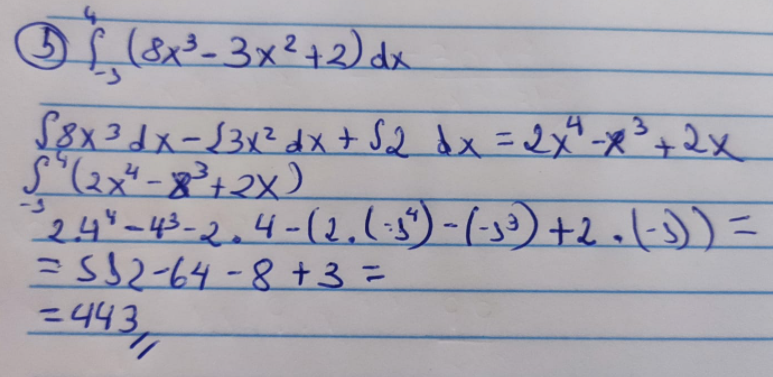 5) ∫₋₁⁴ (8x³ - 3x² + 2) dx
∫8x³ dx - ∫3x² dx + ∫2 dx = 2x⁴ - x³ + 2x
∫₋₁⁴ (2x⁴ - x³ + 2x)
2.4⁴ - 4³ - 2.4 - (2.(-1⁴) - (-1³) + 2.(-1)) =
= 512 - 64 - 8 + 3 =
= 443 //